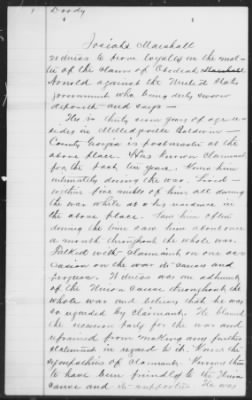 Doody
Josiah Marshall
witness to prove loyalty in the mat-
ter of the claim of Obediah
Arnold against the United States
government who being duly sworn
deposeth and says —
He is thirty seven years of age re-
sides in Milledgeville Baldwin
County Georgia is postmaster at the
above place. Has known claimant
for the past ten years. Knew him
intimately during the war. Lived
within five miles of him all during
the war while at his residence in
the above place. Saw him often
during the time saw him about once
a month throughout the whole war.
Talked with claimant on one oc-
casion on the war its causes and
progress. Witness was an adherent
of the Union cause throughout the
whole war and believes that he was
so regarded by claimant. He blamed
the secession party for the war and
refrained from making any further
statement in regard to it. Knew the
sympathies of claimant. Knows them
to have been friendly to the Union
cause and its supporters. He was